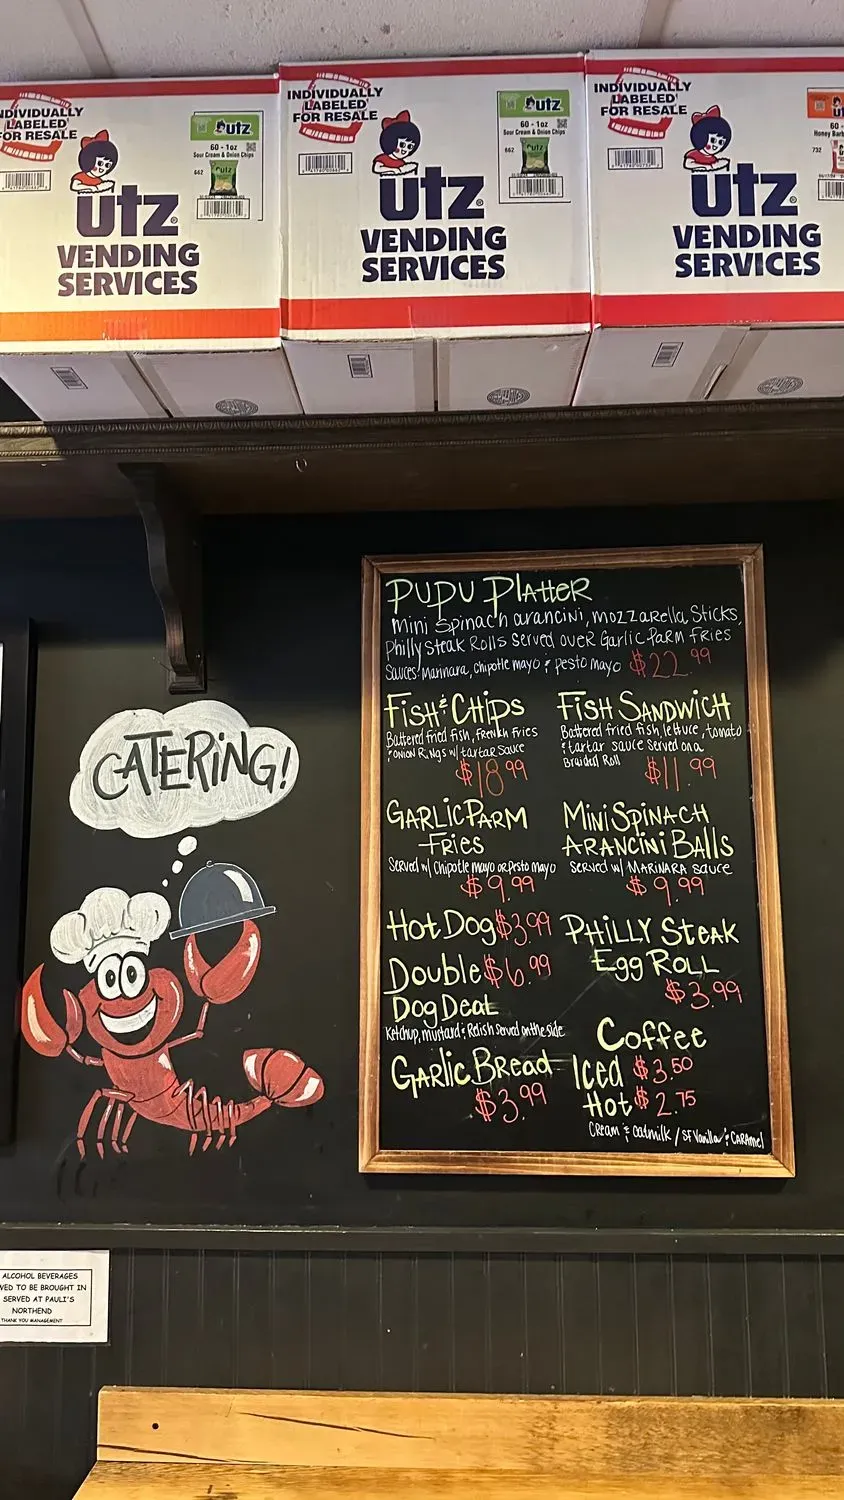 INDIVIDUALLY
LABELED
FOR RESALE
utz
60 - 1oz
Sour Cream & Onion Chips
662
utz
VENDING
SERVICES
INDIVIDUALLY
LABELED
FOR RESALE
utz
60 - 1oz
Sour Cream & Onion Chips
662
utz
VENDING
SERVICES
INDIVIDUALLY
LABELED
FOR RESALE
60 - 1oz
Honey
732
utz
VENDING
SERVICES
CATERING!
PUPU PlatteR
Mini Spinach arancini, mozzarella Sticks,
Philly steak Rolls served over Garlic Parm Fries
Sauces: Marinara, Chipotle mayo & Pesto mayo $22.99
Fish & Chips
Battered fried fish, French Fries
& Onion Rings w/ tartar Sauce
$18.99
Fish Sandwich
Battered fried fish, lettuce, tomato
& tartar sauce Served on a
Braided Roll $11.99
Garlic Parm
Fries
Served w/ Chipotle mayo or Pesto mayo
$9.99
Mini Spinach
Arancini Balls
Served w/ Marinara sauce
$9.99
Hot Dog $3.99
Double $6.99
Dog Deal
Ketchup, mustard & Relish Served on the side
Garlic Bread
$3.99
Philly Steak
Egg Roll
$3.99
Coffee
Iced $3.50
Hot $2.75
Cream & Oatmilk / SF Vanilla & Caramel
ALCOHOL BEVERAGES
VED TO BE BROUGHT IN
SERVED AT PAULI'S
NORTHEND
THANK YOU MANAGEMENT